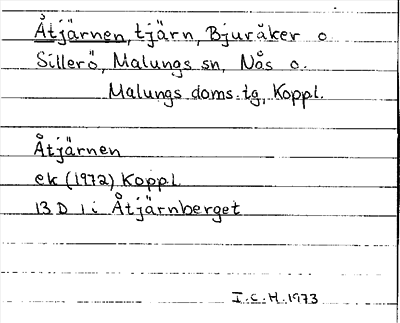 Åtjärnen, tjärn, Bjuråker o
Sillerö, Malungs sn, Nås o.
Malungs doms.tg, Koppl.
Åtjärnen
ek (1972) Koppl
13 D 1 i Åtjärnberget
I.C.H. 1973